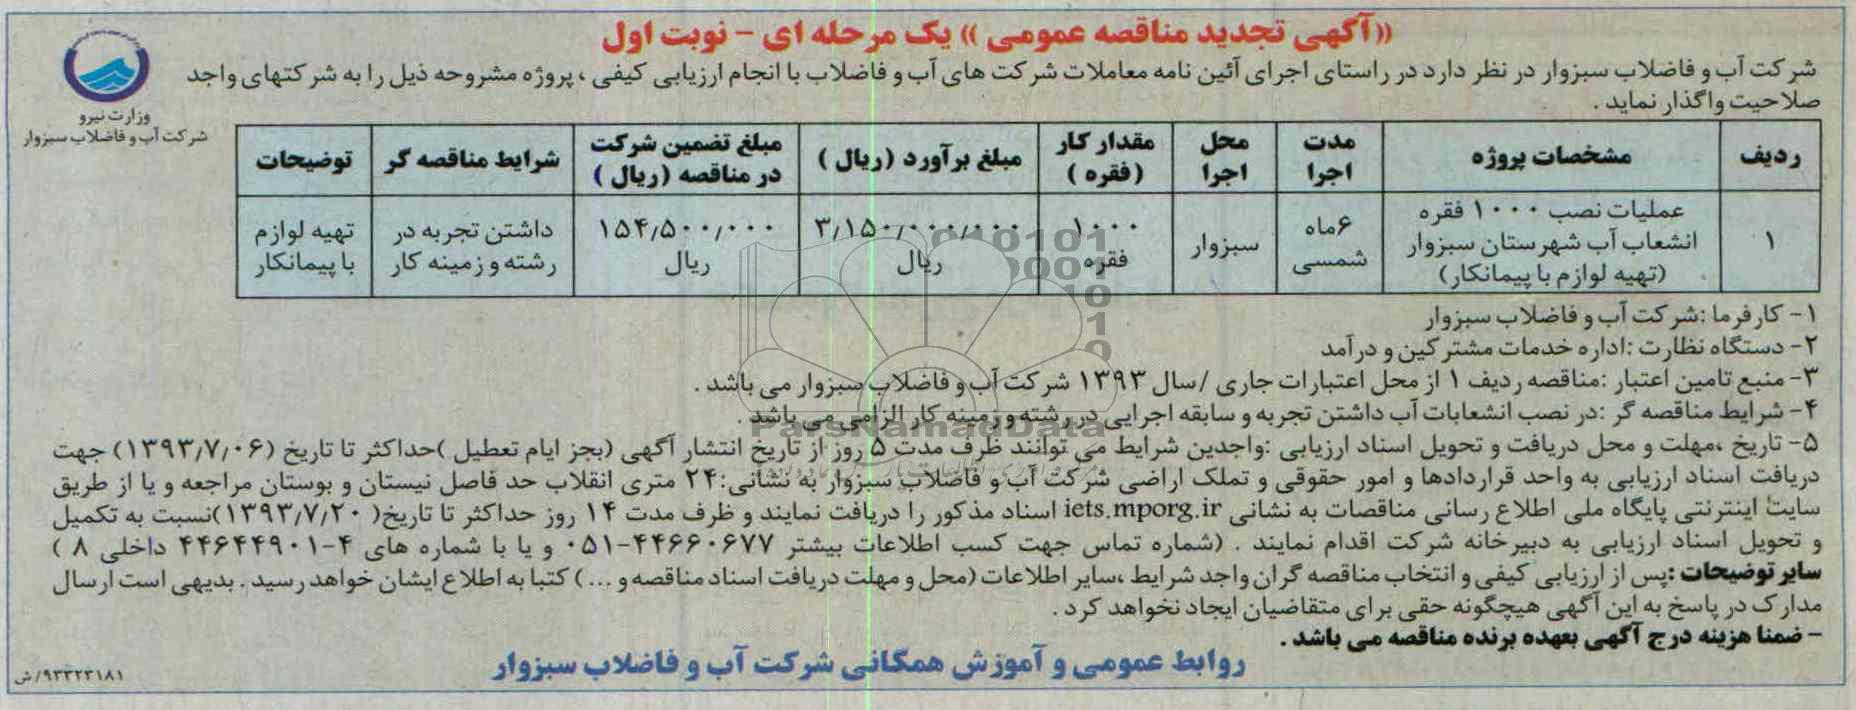 «آگهی تجدید مناقصه عمومی» یک مرحله ای - نوبت اول
وزارت نیرو
شرکت آب و فاضلاب سبزوار
شرکت آب و فاضلاب سبزوار در نظر دارد در راستای اجرای آئین نامه معاملات شرکت های آب و فاضلاب با انجام ارزیابی کیفی ، پروژه مشروحه ذیل را به شرکتهای واجد
صلاحیت واگذار نماید .
ردیف | مشخصات پروژه | مدت اجرا | محل اجرا | مقدار کار (فقره ) | مبلغ برآورد (ریال ) | مبلغ تضمین شرکت در مناقصه (ریال ) | شرایط مناقصه گر | توضیحات
۱ | عملیات نصب ۱۰۰۰ فقره انشعاب آب شهرستان سبزوار (تهیه لوازم با پیمانکار) | ۶ماه شمسی | سبزوار | ۱۰۰۰ فقره | ۳٫۱۵۰٫۰۰۰٫۰۰۰ ریال | ۱۵۴٫۵۰۰٫۰۰۰ ریال | داشتن تجربه در رشته و زمینه کار | تهیه لوازم با پیمانکار
۱- کارفرما :شرکت آب و فاضلاب سبزوار
۲- دستگاه نظارت :اداره خدمات مشترکین و درآمد
۳- منبع تامین اعتبار :مناقصه ردیف ۱ از محل اعتبارات جاری /سال ۱۳۹۳ شرکت آب و فاضلاب سبزوار می باشد .
۴- شرایط مناقصه گر :در نصب انشعابات آب داشتن تجربه و سابقه اجرایی در رشته و زمینه کار الزامی می باشد .
۵- تاریخ ،مهلت و محل دریافت و تحویل اسناد ارزیابی :واجدین شرایط می توانند ظرف مدت ۵ روز از تاریخ انتشار آگهی (بجز ایام تعطیل )حداکثر تا تاریخ (۱۳۹۳٫۷٫۰۶) جهت
دریافت اسناد ارزیابی به واحد قراردادها و امور حقوقی و تملک اراضی شرکت آب و فاضلاب سبزوار به نشانی:۲۴ متری انقلاب حد فاصل نیستان و بوستان مراجعه و یا از طریق
سایت اینترنتی پایگاه ملی اطلاع رسانی مناقصات به نشانی iets.mporg.ir اسناد مذکور را دریافت نمایند و ظرف مدت ۱۴ روز حداکثر تا تاریخ( ۱۳۹۳٫۷٫۲۰)نسبت به تکمیل
و تحویل اسناد ارزیابی به دبیرخانه شرکت اقدام نمایند . (شماره تماس جهت کسب اطلاعات بیشتر ۴۴۶۶۰۶۷۷-۰۵۱ و یا با شماره های ۴-۴۴۶۴۴۹۰۱ داخلی ۸ )
سایر توضیحات :پس از ارزیابی کیفی و انتخاب مناقصه گران واجد شرایط ،سایر اطلاعات (محل و مهلت دریافت اسناد مناقصه و ... ) کتبا به اطلاع ایشان خواهد رسید . بدیهی است ارسال
مدارک در پاسخ به این آگهی هیچگونه حقی برای متقاضیان ایجاد نخواهد کرد .
- ضمنا هزینه درج آگهی بعهده برنده مناقصه می باشد .
روابط عمومی و آموزش همگانی شرکت آب و فاضلاب سبزوار
۹۳۲۲۳۱۸۱/ش
ParsNamadData